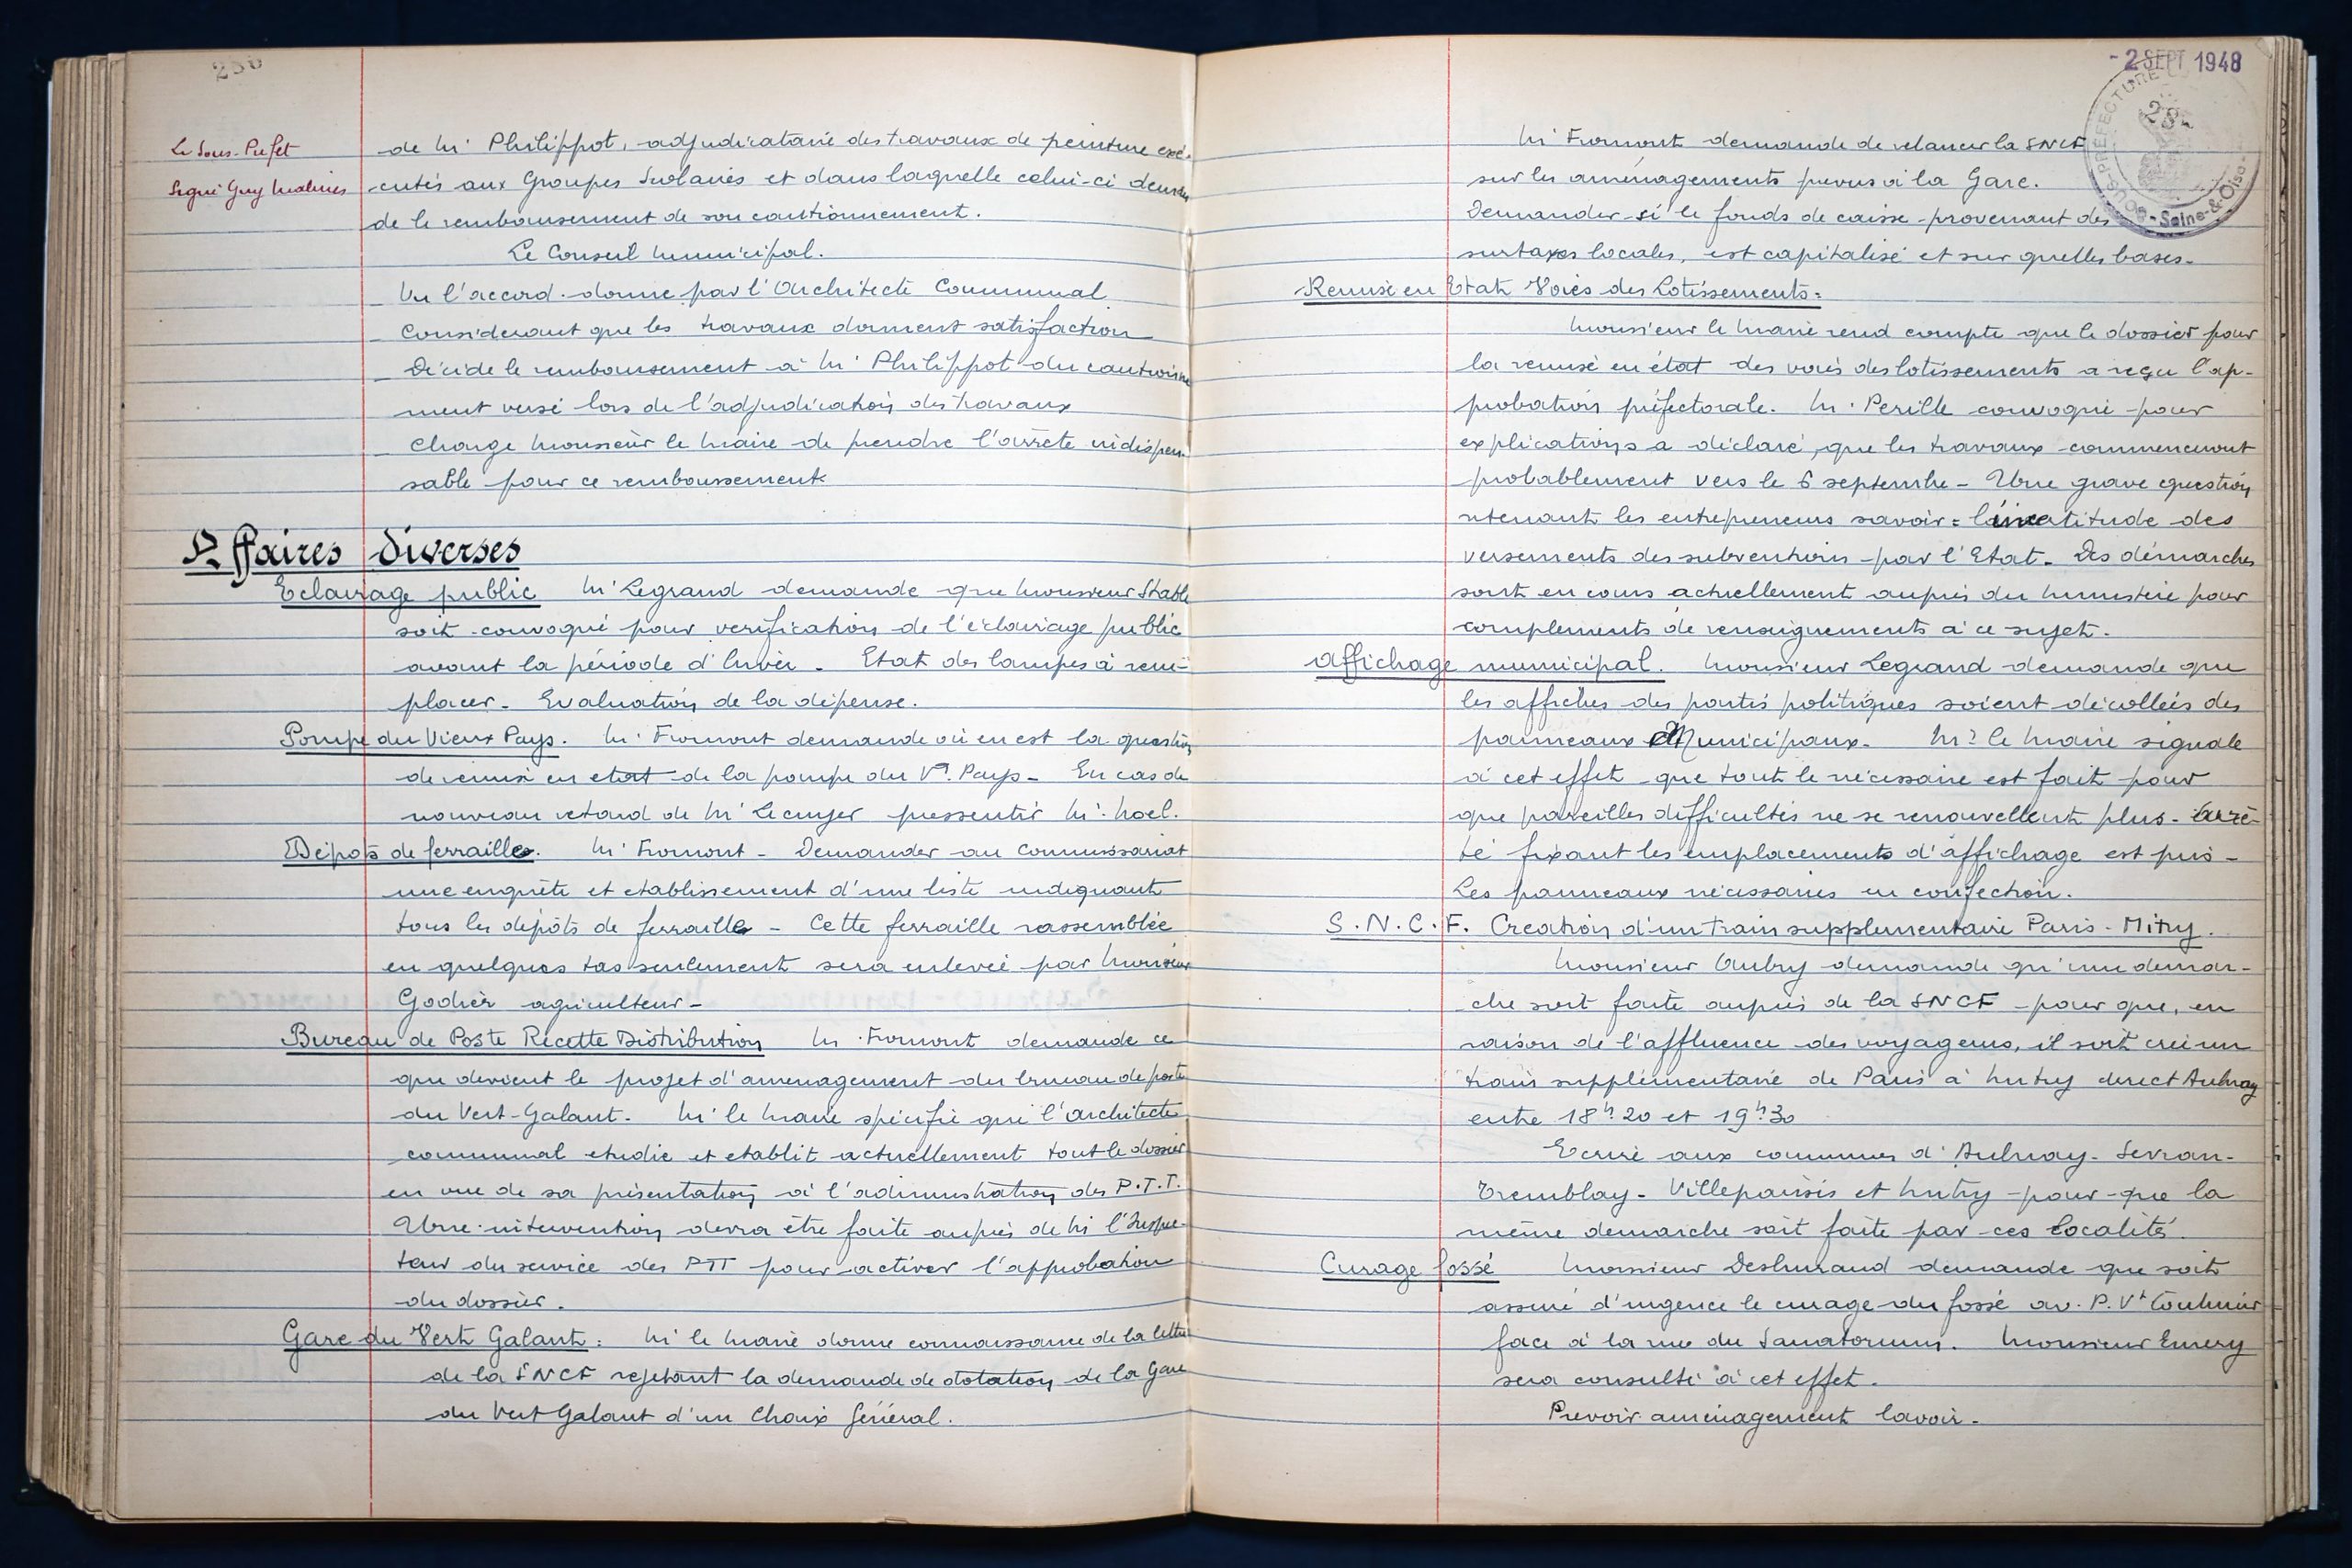 280
Le Sous-Préfet
Signé Guy
de Mr Philippot, adjudicataire des travaux de peinture exé-
cutés aux Groupes Scolaires et dans laquelle celui-ci deman
de le remboursement de son cautionnement.
Le Conseil Municipal.
_ Vu l'accord donné par l'Architecte Communal
_ Considerant que les travaux donnent satisfaction
_ Décide le remboursement à Mr Philippot du cautionne
ment versé lors de l'adjudication des travaux
_ Charge Monsieur le Maire de prendre l'arrêté indispen
sable pour ce remboursement
Affaires diverses
Eclairage public Mr Legrand demande que Monsieur Stable
soit convoqué pour verification de l'éclairage public
avant la période d'hiver. Etat des lampes à rem-
placer. Evaluation de la dépense.
Pompe du Vieux Pays. Mr Fromont demande où en est la question
de remise en etat de la pompe du Vx Pays_ En cas de
nouveau retard de Mr Lecuyer pressentir Mr Noel.
Dépots de ferrailles. Mr Fromont_ Demander au Commissariat
une enquête et etablissement d'une liste indiquant
tous les dépôts de ferraille_ Cette ferraille rassemblée
en quelques tas seulement sera enlevée par Monsieur
Godier agriculteur_
Bureau de Poste Recette Distribution Mr Fromont demande ce
que devient le projet d'amenagement du bureau de poste
du Vert-Galant. Mr le Maire spécifie que l'architecte
communal etudie et etablit actuellement tout le dossier
en vue de sa présentation à l'administration des P.T.T.
Une intervention devra être faite auprès de Mr l'Inspec-
teur du service des PTT pour activer l'approbation
du dossier.
Gare du Vert Galant: Mr le Maire donne connaissance de la lettre
de la SNCF rejetant la demande de dotation de la Gare
du Vert Galant d'un Chaix Général.
- 2 SEPT 1948
SOUS-PRÉFECTURE
Seine-&-Oise
Mr Fromont demande de relancer la SNCF
sur les aménagements prevus à la Gare.
Demander si le fonds de caisse provenant des
surtaxes locales, est capitalisé et sur quelles bases_
Remise en Etat Voies des Lotissements:
Monsieur le Maire rend compte que le dossier pour
la remise en état des voies des lotissements a reçu l'ap-
probation préfectorale. Mr Perille convoqué pour
explications a déclaré que les travaux commenceront
probablement vers le 6 septembre_ Une grave question
retenant les entrepreneurs savoir:
versements des subventions par l'Etat_ Des démarches
sont en cours actuellement auprès du Ministère pour
complements de renseignements à ce sujet.
Affichage municipal. Monsieur Legrand demande que
les affiches des partis politiques soient décollées des
panneaux Municipaux_ Mr le Maire signale
à cet effet que tout le nécessaire est fait pour
que pareilles difficultés ne se renouvellent plus_ Arrê-
té fixant les emplacements d'affichage est pris_
Les panneaux nécessaires en confection.
S.N.C.F. Creation d'un train supplementaire Paris-Mitry.
Monsieur Aubry demande qu'une demar-
che soit faite auprès de la SNCF pour que, en
raison de l'affluence des voyageurs, il soit créé un
train supplémentaire de Paris à Mitry direct Aulnay
entre 18h20 et 19h30
Ecrire aux communes d'Aulnay-Sevran-
Tremblay-Villeparisis et Mitry pour que la
même demarche soit faite par ces localités.
Curage fossé Monsieur demande que soit
assuré d'urgence le curage du fossé av. P. Vt Couturier
face à la rue du Sanatorium. Monsieur Emery
sera consulté à cet effet.
Prevoir aménagement lavoir_